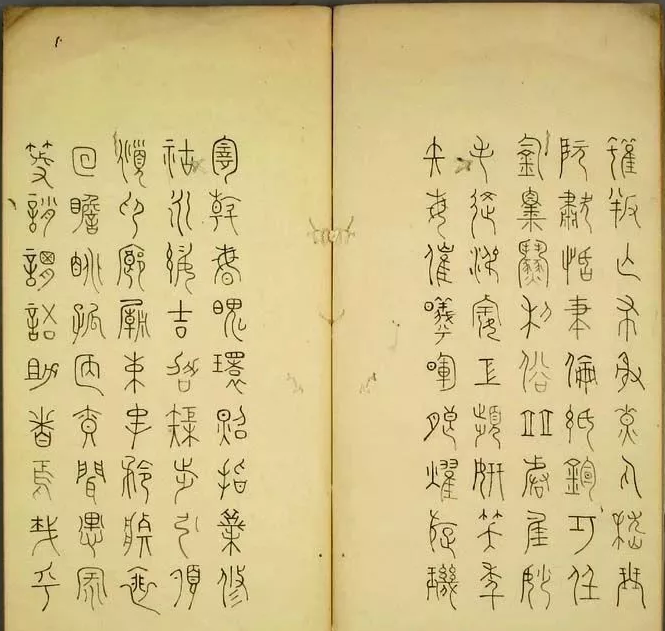 獲叛亡布射遼丸嵇琴
阮嘯恬筆倫紙鈞巧任
釣釋紛利俗並皆佳妙
毛施淑姿工顰妍笑年
矢每催曦暉朗耀旋璣
懸斡晦魄環照指薪修
祜永綏吉劭矩步引領
俯仰廊廟束帶矜莊徘
徊瞻眺孤陋寡聞愚蒙
等誚謂語助者焉哉乎